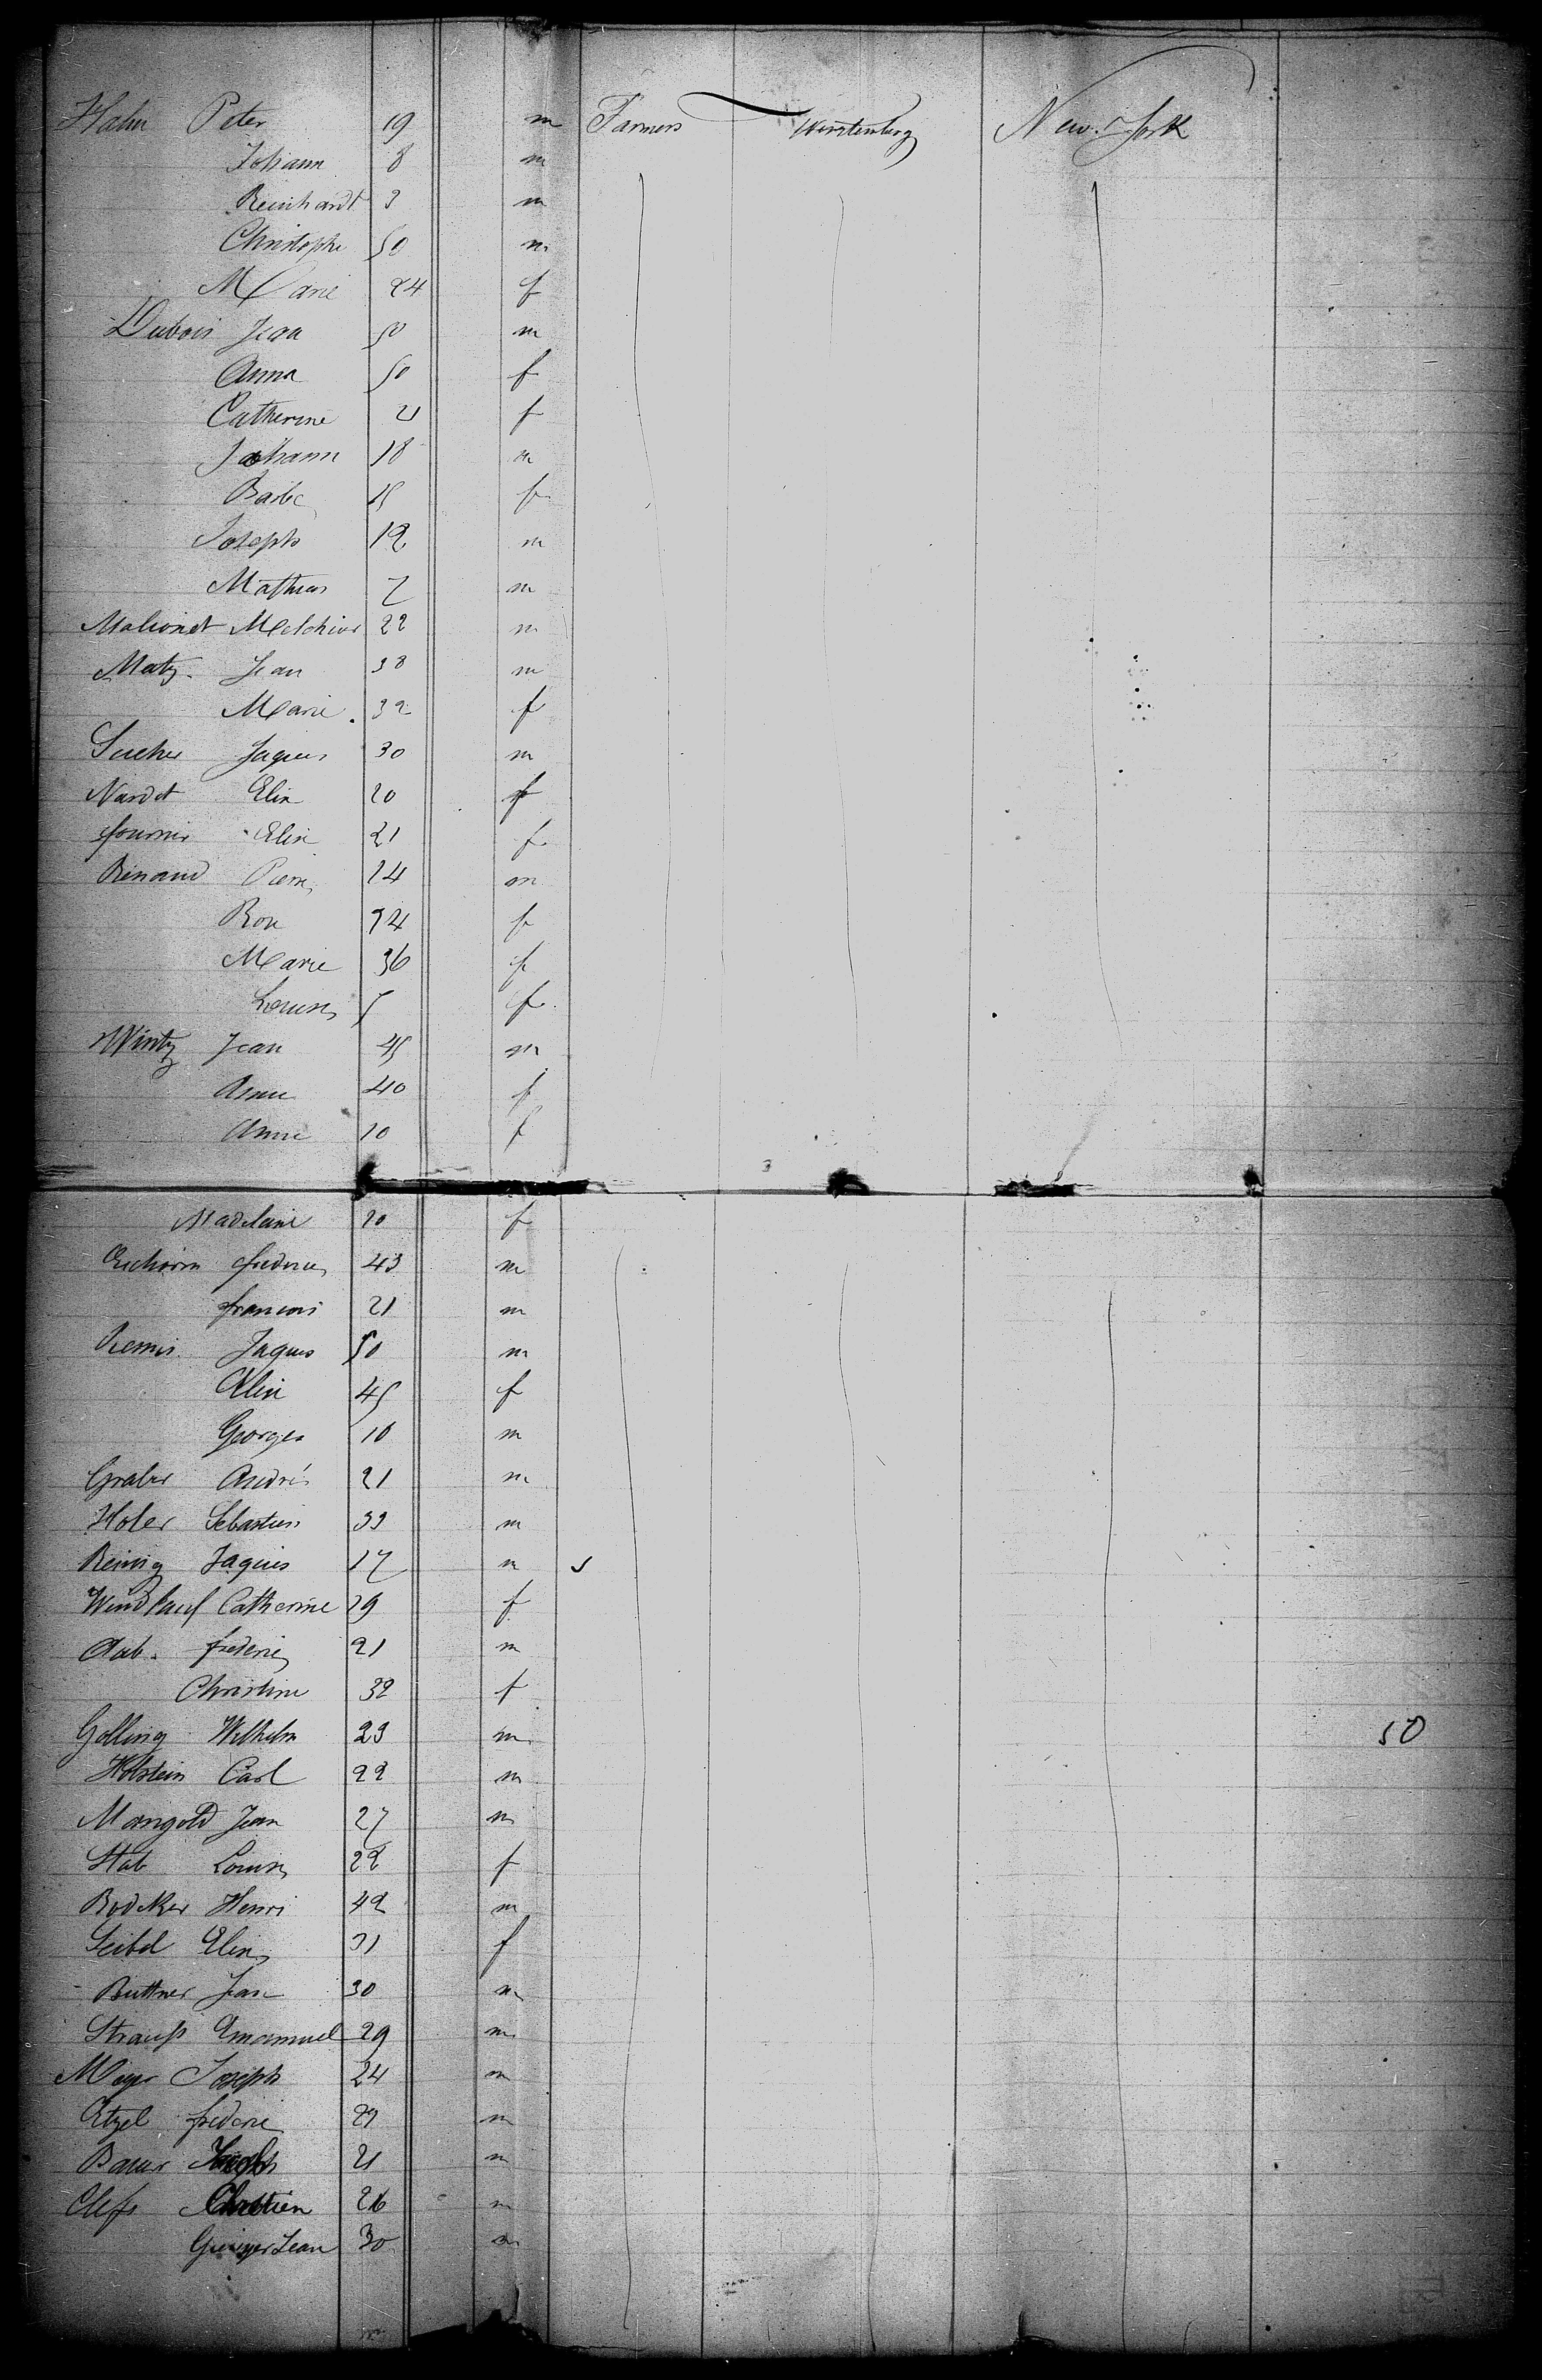 Hahn Peter 19 m Farmers Wirstenberg New-York
Johann 8 m
Reinhardt 3 m
Christophe 50 m
Marie 24 f
Dubois Jean 50 m
Anna 50 f
Catherine 21 f
Johann 18 m
Barbe 15 f
Joseph 12 m
Mathias 7 m
Melchior 22 m
Matz. Jean 38 m
Marie. 32 f
Jaques 30 m
Elise 20 f
fournier Elise 21 f
Renaud Pierre 24 m
34 f
Marie 36 f
Louise 5 f
Wintz Jean 45 m
Anne 40 f
Anne 10 f
Madelaine 20 f
Eichorn frederic 43 m
francois 21 m
Remis Jaques 50 m
Elise 45 f
Georges 10 m
Graber André 21 m
Hofer Sebastien 33 m
Reinig Jaques 17 m
Catherine 29 f
Aab. frederic 21 m
Christine 32 f
Golling Wilhelm 23 m 50
Holstein Carl 22 m
Mangold Jean 27 m
Stab Louise 22 f
Bodeker Henri 42 m
Seibel Elise 31 f
Buttner Jean 30 m
Strauß Emanuel 29 m
Meyer Joseph 24 m
Etzel frederic 27 m
Bauer Joseph 21 m
Chretien 26 m
Jean 30 m